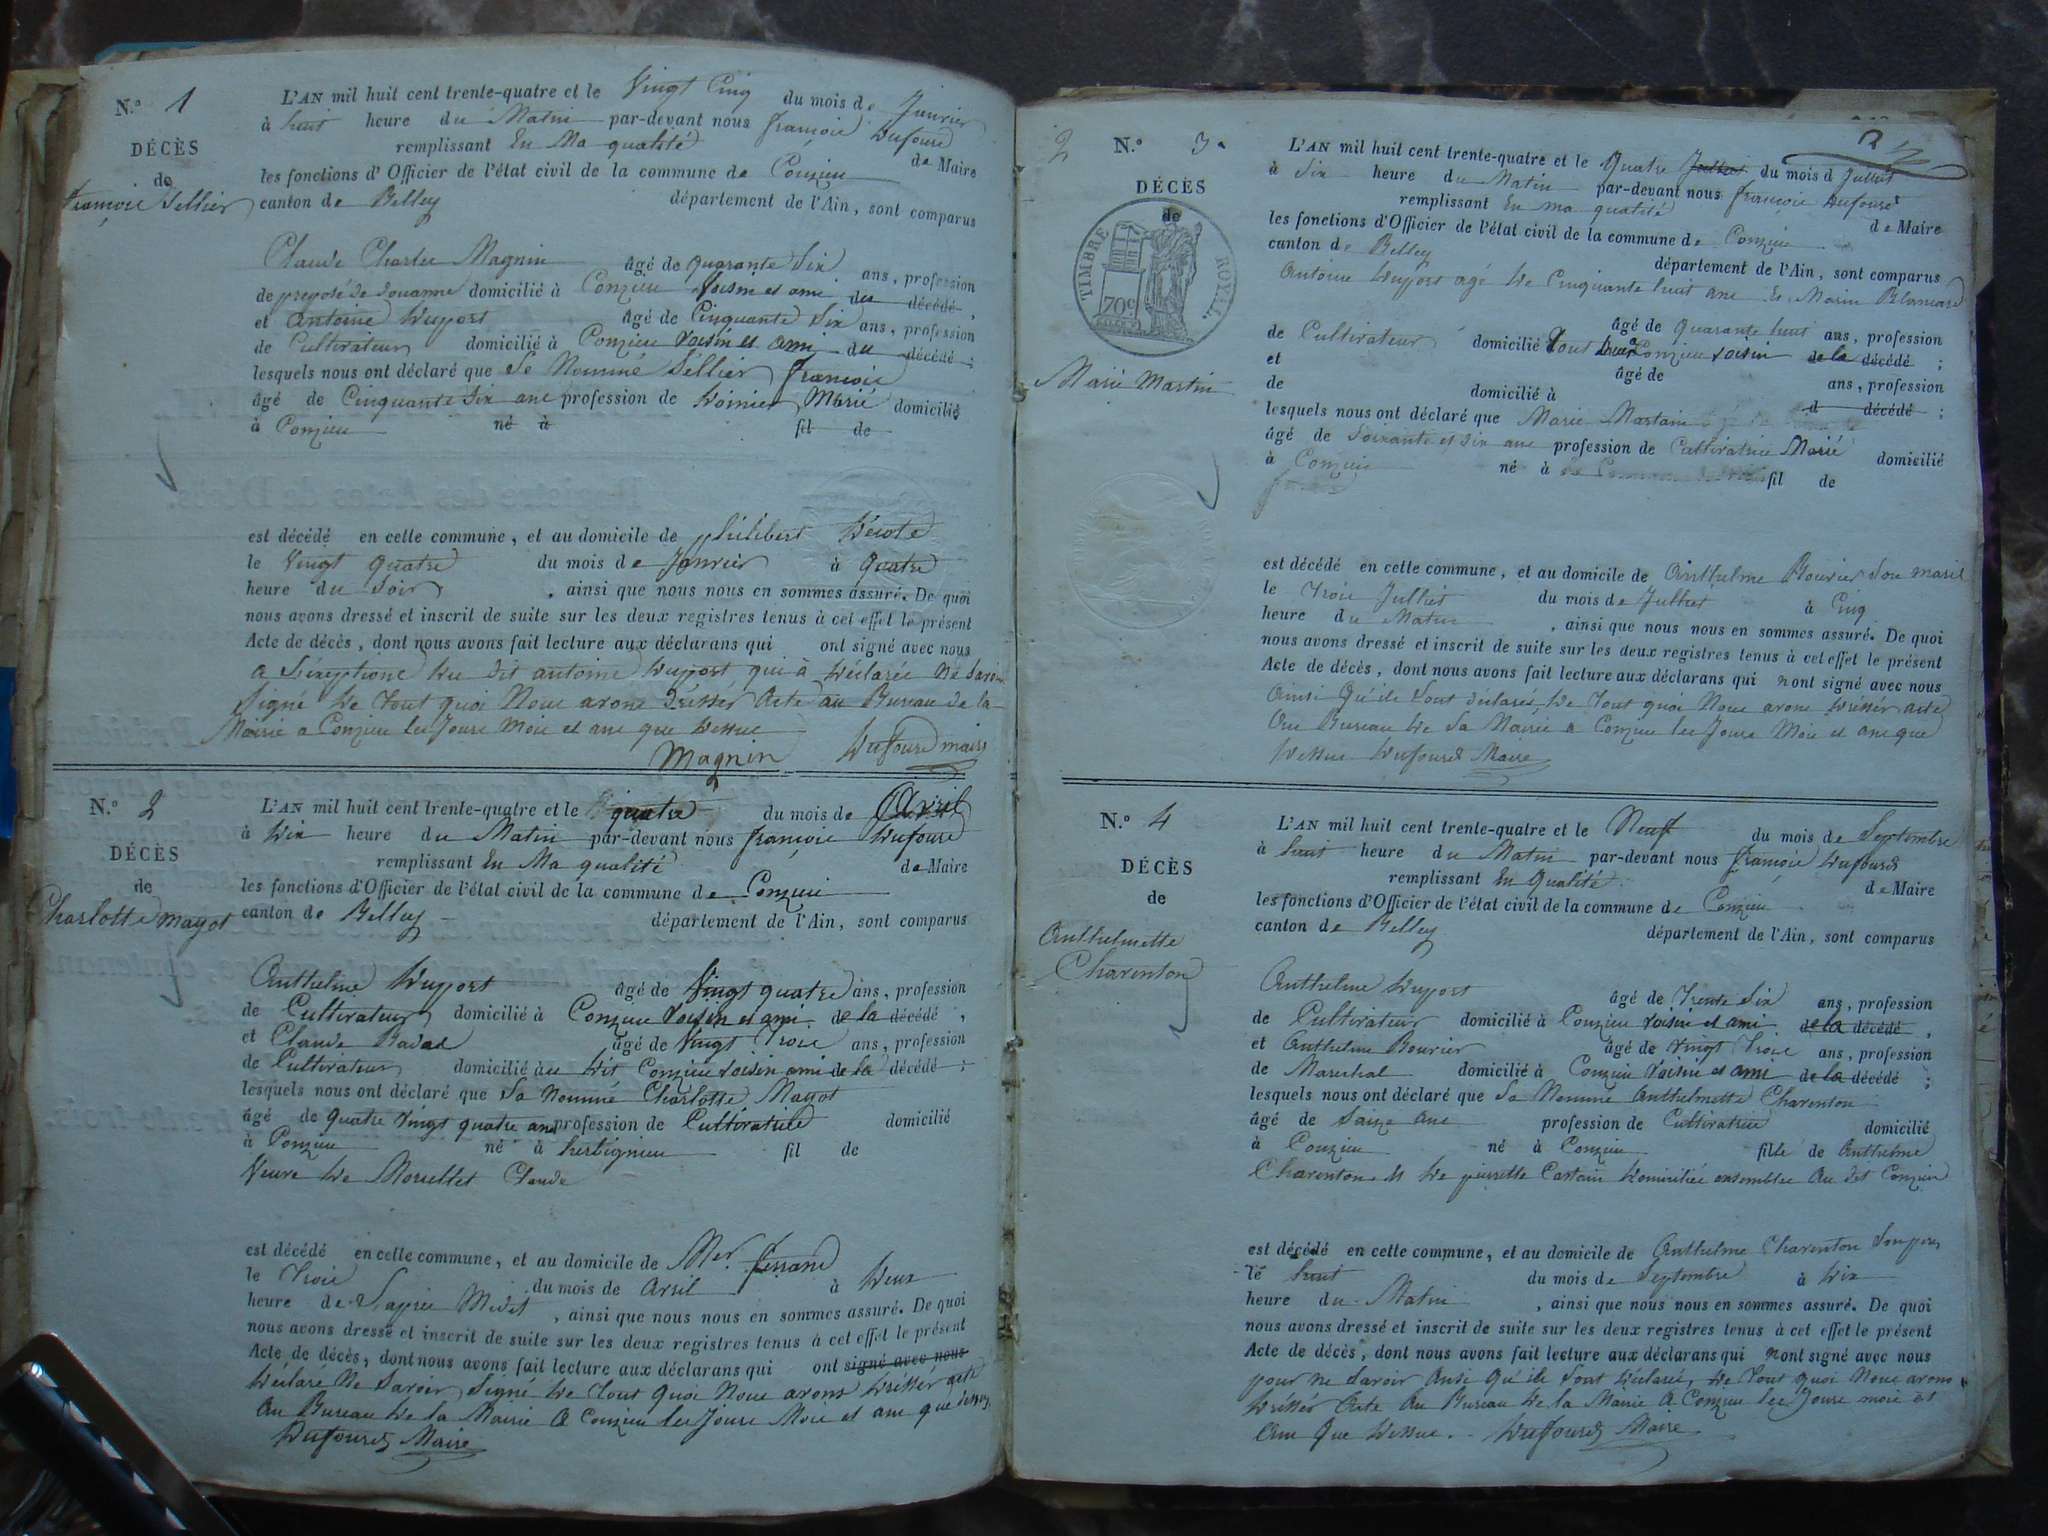 N.º 1
DÉCÈS
de
françois Sellier
L'AN mil huit cent trente-quatre et le Vingt Cinq du mois de Janvier
à huit heure du Matin par-devant nous françois Dufour
remplissant En Ma qualité de Maire
les fonctions d'Officier de l'état civil de la commune de Conzieu
canton de Belley département de l'Ain, sont comparus
Claude Charles Magnin âgé de quarante Six ans, profession
de preposé de douanne domicilié à Conzieu Voisin et ami du décédé ;
et Antoine Duport âgé de Cinquante Six ans, profession
de Cultivateur domicilié à Conzieu voisin et ami du décédé ;
lesquels nous ont déclaré que Le Nommé Sellier françois
âgé de Cinquante Six ans profession de Marié domicilié
à Conzieu né à fil de
est décédé en cette commune, et au domicile de philibert
le Vingt quatre du mois de Janvier à quatre
heure du Soir , ainsi que nous nous en sommes assuré. De quoi
nous avons dressé et inscrit de suite sur les deux registres tenus à cet effet le présent
Acte de décès, dont nous avons fait lecture aux déclarans qui ont signé avec nous
a Lexeptione du dit antoine Duport qui à déclarée Ne Savoir
Signé de Tout quoi Nous avons Drésser Acte au Bureau de la
Mairie a Conzieu les Jours Mois et ans que dessus
Magnin Dufour maire
N.º 2
DÉCÈS
de
Charlotte mayot
L'AN mil huit cent trente-quatre et le quatre du mois de Avril
à Dix heure du Matin par-devant nous françois Dufour
remplissant En Ma qualité de Maire
les fonctions d'Officier de l'état civil de la commune de Conzieu
canton de Belley département de l'Ain, sont comparus
Anthelme Duport âgé de Vingt quatre ans, profession
de Cultivateur domicilié à Conzieu Voisin et ami de la décédé ,
et Claude Badat âgé de Vingt Trois ans, profession
de Cultivateur domicilié au Dit Conzieu voisin ami de la décédé ;
lesquels nous ont déclaré que La Nommé Charlotte Mayot
âgé de quatre Vingt quatre ans profession de Cultivatrice domicilié
à Conzieu né à herbignieu fil de
Veuve de Morellet Claude
est décédé en cette commune, et au domicile de Mer. ferrand
le Trois du mois de Avril à Deux
heure de Lapres Midit , ainsi que nous nous en sommes assuré. De quoi
nous avons dressé et inscrit de suite sur les deux registres tenus à cet effet le présent
Acte de décès, dont nous avons fait lecture aux déclarans qui ont signé avec nous
Déclare Ne Savoir Signé de Tout quoi Nous avons Drésser acte
Au Bureau de la Mairie a Conzieu les Jours Mois et ans que dessus
Dufour Maire
2
N.º 3.
DÉCÈS
de
TIMBRE ROYAL
70c
Marie Martin
L'AN mil huit cent trente-quatre et le Quatre Julliet du mois d Julliet
à Six heure du Matin par-devant nous françois Dufour
remplissant En ma qualité de Maire
les fonctions d'Officier de l'état civil de la commune de Conzieu
canton de Belley département de l'Ain, sont comparus
Antoine Duport agé de Cinquante huit ans Et Morin Blancard
âgé de quarante huit ans, profession
de Cultivateur domicilié Tout Conzieu voisin de la décédé ;
et âgé de ans, profession
de domicilié à d décédé ;
lesquels nous ont déclaré que Marie Martain
âgé de Soixante et dix ans profession de Cultivatrice Marié domicilié
à Conzieu né à fil de
est décédé en cette commune, et au domicile de Anthelme Bouvier Son marit
le Trois Julliet du mois de Julliet à Cinq
heure du Matin , ainsi que nous nous en sommes assuré. De quoi
nous avons dressé et inscrit de suite sur les deux registres tenus à cet effet le présent
Acte de décès, dont nous avons fait lecture aux déclarans qui nont signé avec nous
Ainsi Qu'ils Sont déclarés de Tout quoi Nous avons Drésser acte
Au Bureau de La Mairie a Conzieu les Jours Mois et ans que
Dessus Dufour Maire
N.º 4
DÉCÈS
de
Anthelmette
Charenton
L'AN mil huit cent trente-quatre et le Neuf du mois de Septembre
à huit heure du Matin par-devant nous françois Dufour
remplissant En Qualité de Maire
les fonctions d'Officier de l'état civil de la commune de Conzieu
canton de Belley département de l'Ain, sont comparus
Anthelme Duport âgé de Trente Six ans, profession
de Cultivateur domicilié à Conzieu voisin et ami de la décédé ,
et Anthelme Bouvier âgé de Vingt Trois ans, profession
de Marechal domicilié à Conzieu Voisin et ami de la décédé ;
lesquels nous ont déclaré que La Nommé Anthelmette Charenton
âgé de Saize ans profession de Cultivatrice domicilié
à Conzieu né à Conzieu fille de Anthelme
Charenton et de pierrette Castain domiciliée ensembles Au dit Conzieu
est décédé en cette commune, et au domicile de Anthelme Charenton Son pere
le huit du mois de Septembre à Dix
heure du Matin , ainsi que nous nous en sommes assuré. De quoi
nous avons dressé et inscrit de suite sur les deux registres tenus à cet effet le présent
Acte de décès, dont nous avons fait lecture aux déclarans qui nont signé avec nous
pour ne Savoir Ainsi Qu'ils Sont Déclarés, de Tout quoi Nous avons
Drésser Acte Au Bureau de la Mairie A Conzieu les Jours mois et
Ans Que Dessus. Dufour Maire